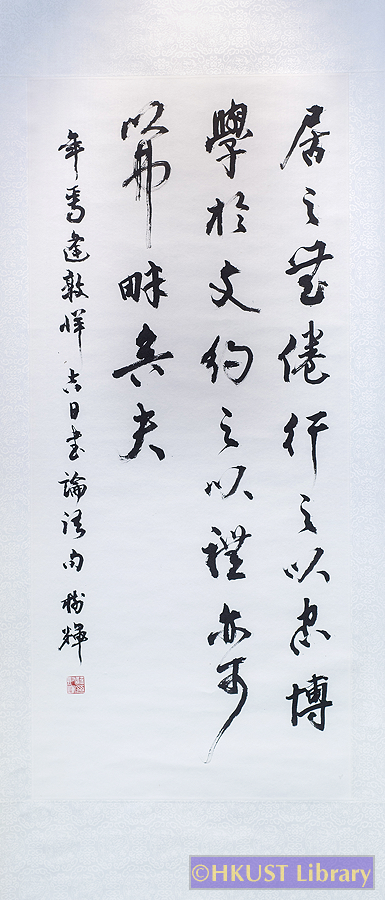 居之無倦行之以忠博
學於文約之以禮亦可
以弗畔矣夫
年焉逢敦牂吉日書論語句樹輝
©HKUST Library